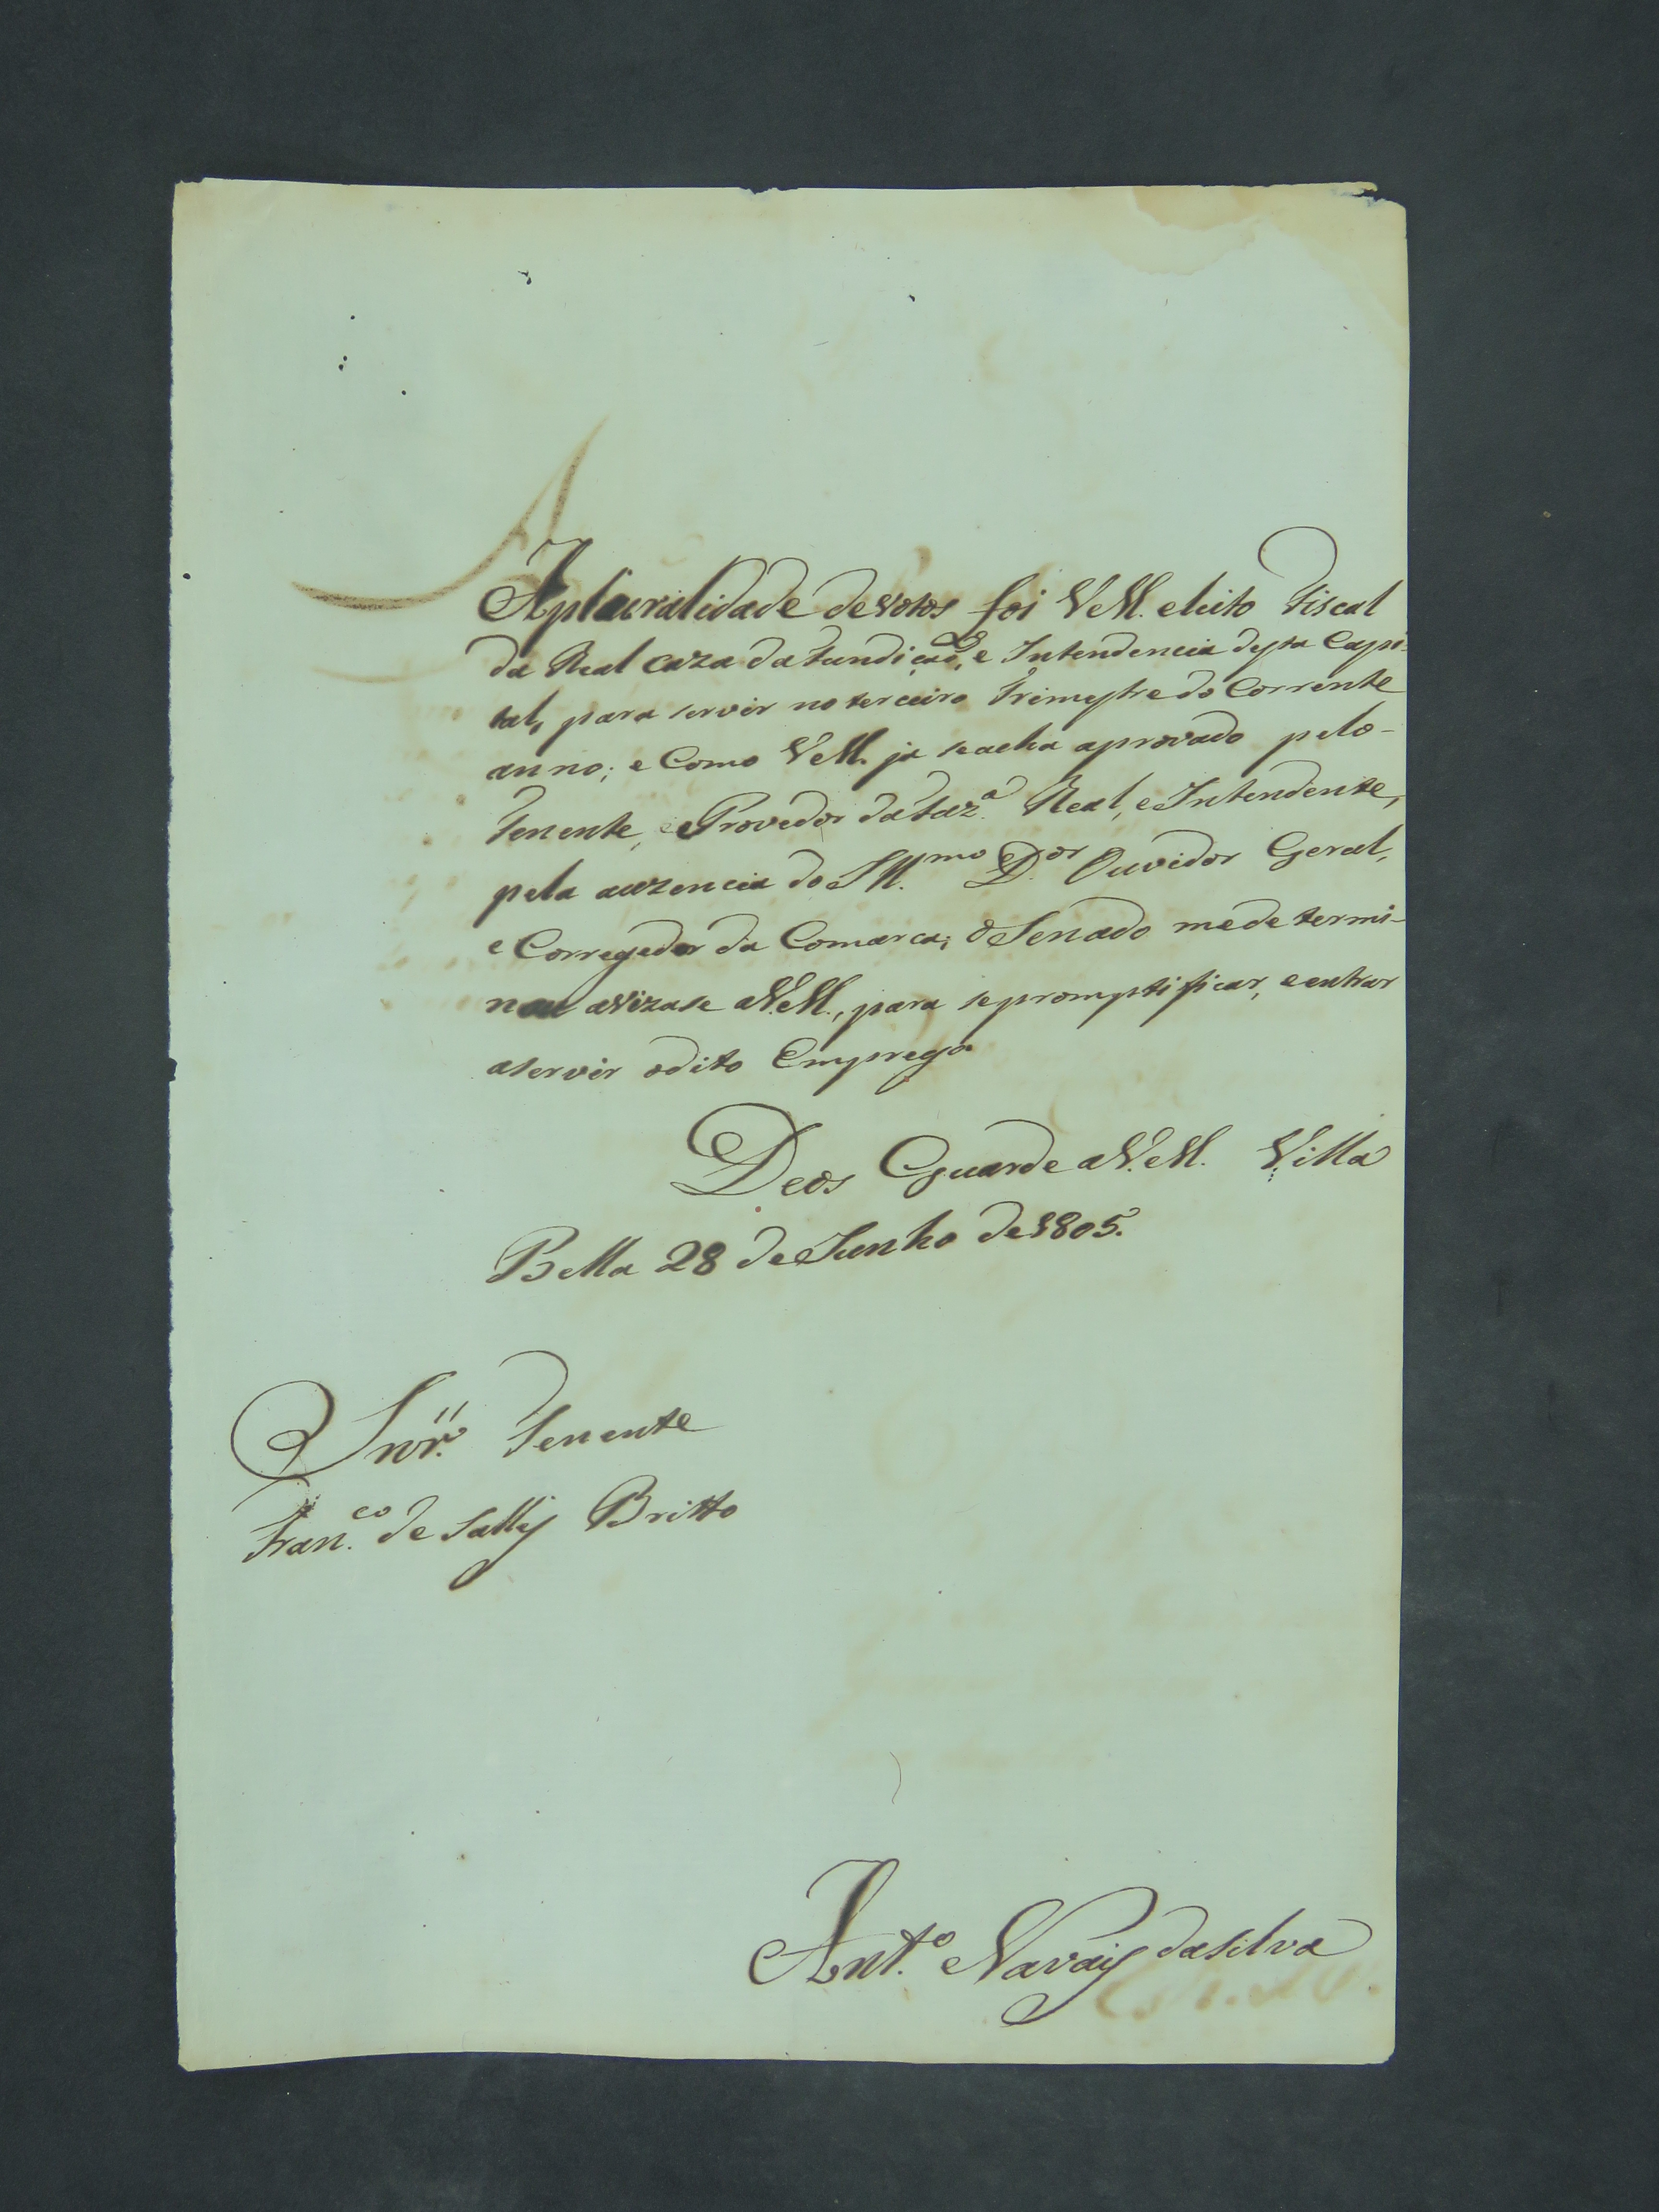 Apluralidade devotos foi VeM. eleito Fiscal
da Real caza da Fundição, e Intendencia desta Capi-
tal, para servir no terceiro Trimestre do Corrente
anno; e Como VeM. ja seacha aprovado pelo-
Tenente, e Provedor da Faz.ª Real, e Intendente,
pela auzencia do Ill.mo D.or Ouvidor Geral,
e Corregedor da Comarca; o Senado medetermi-
nou avizase aV.eM., para sepromptificar, e entrar
aservir odito Emprego
Deos Guarde aV.eM. Villa
Bella 28 de Junho de 1805.
Snr. Tenente
Fran.co de Salles Britto
Ant.º Navais da Silva